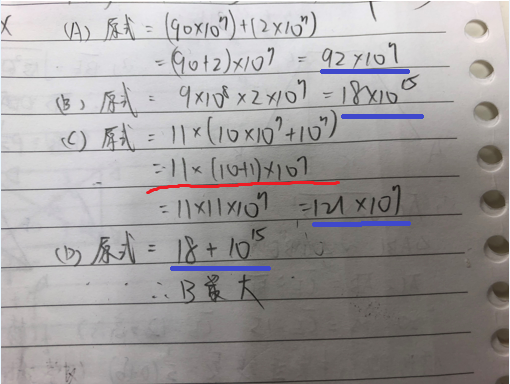 (A) 原式 = (90×10⁷)+(2×10⁷)
= (90+2)×10⁷ = 92×10⁷
(B) 原式 = 9×10⁸×2×10⁷ = 18×10¹⁵
(C) 原式 = 11×(10×10⁷+10⁷)
= 11×(10+1)×10⁷
= 11×11×10⁷ = 121×10⁷
(D) 原式 = 18+10¹⁵
∴ B最大